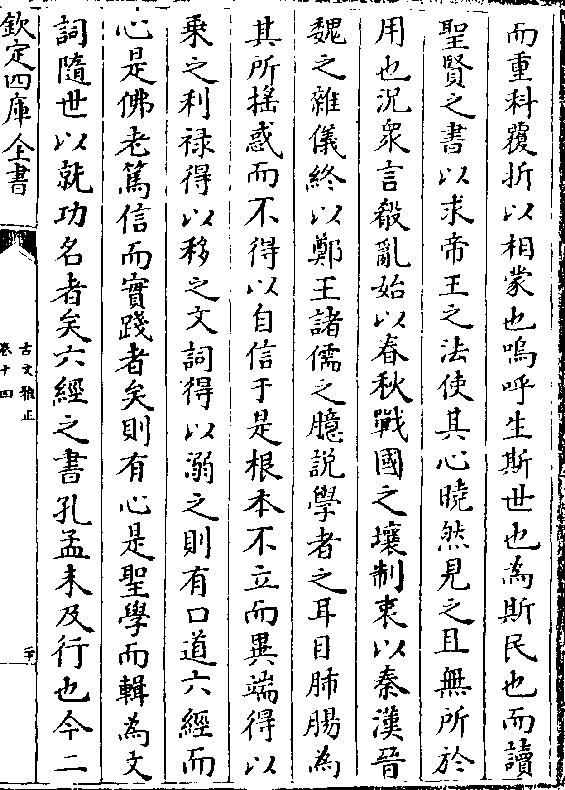 而重科覆折以相蒙也嗚呼生斯世也為斯民也而讀
聖賢之書以求帝王之法使其心曉然見之且無所於
用也況衆言殽亂始以春秋戰國之壞制衷以秦漢晉
魏之雜儀終以鄭王諸儒之臆説學者之耳目肺腸為
其所搖惑而不得以自信于是根本不立而異端得以
乘之利禄得以移之文詞得以溺之則有口道六經而
心是佛老篤信而實踐者矣則有心是聖學而輯為文
詞隨世以就功名者矣六經之書孔孟未及行也今二
欽定四庫全書
古文雅正
卷十四